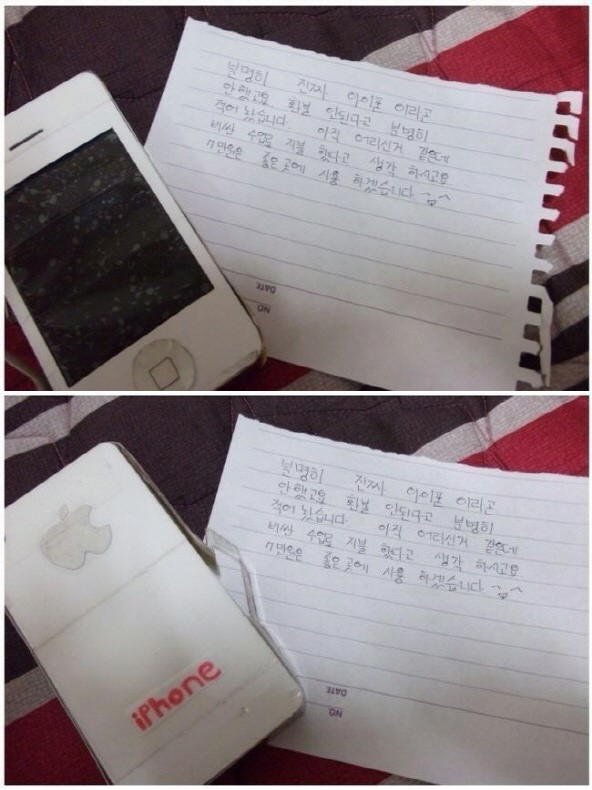 분명히 진짜 아이폰 이라고
안했고요 환불 안된다고 분명히
적어 놨습니다 아직 어리신거 같은데
비싼 수업료 지불 했다고 생각 하시고요
7만원은 좋은곳에 사용 하겠습니다 ^^
DATE
NO
분명히 진짜 아이폰 이라고
안했고요 환불 안된다고 분명히
적어 놨습니다 아직 어리신거 같은데
비싼 수업료 지불 했다고 생각 하시고요
7만원은 좋은곳에 사용 하겠습니다 ^^
iPhone
DATE
NO